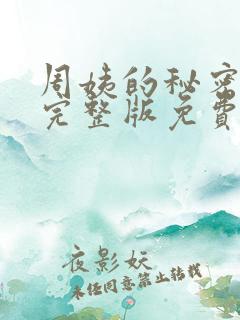 周姨的秘密
完整版免费
夜影妖
未经同意禁止转载